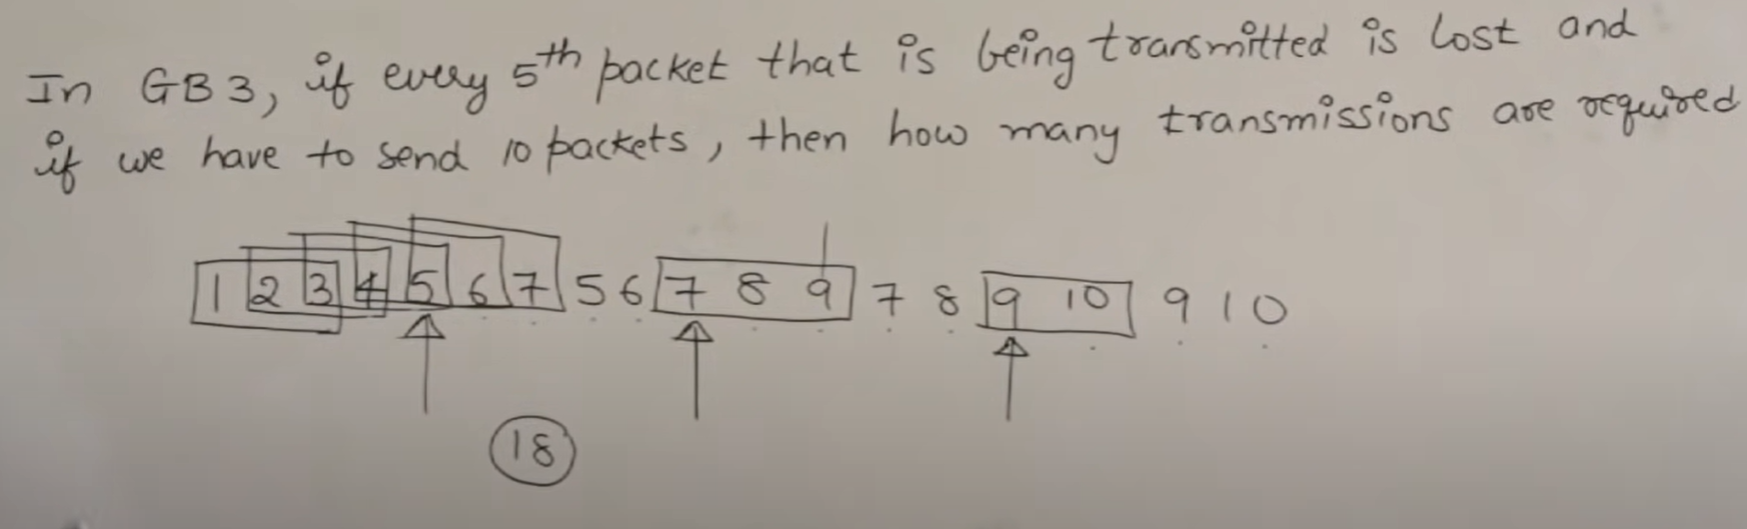 In GB3, if every 5th packet that is being transmitted is lost and
if we have to send 10 packets, then how many transmissions are required
1 2 3 4 5 6 7 5 6 7 8 9 7 8 9 10 9 10
18